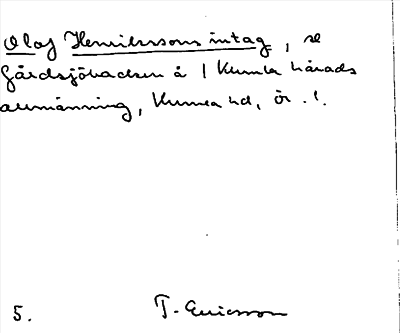 Olof Henrikssons intag, se
Gårdsjöbacken å / Kumla härads
allmänning, Kumla hd, Ör. l.
5. T. Ericsson